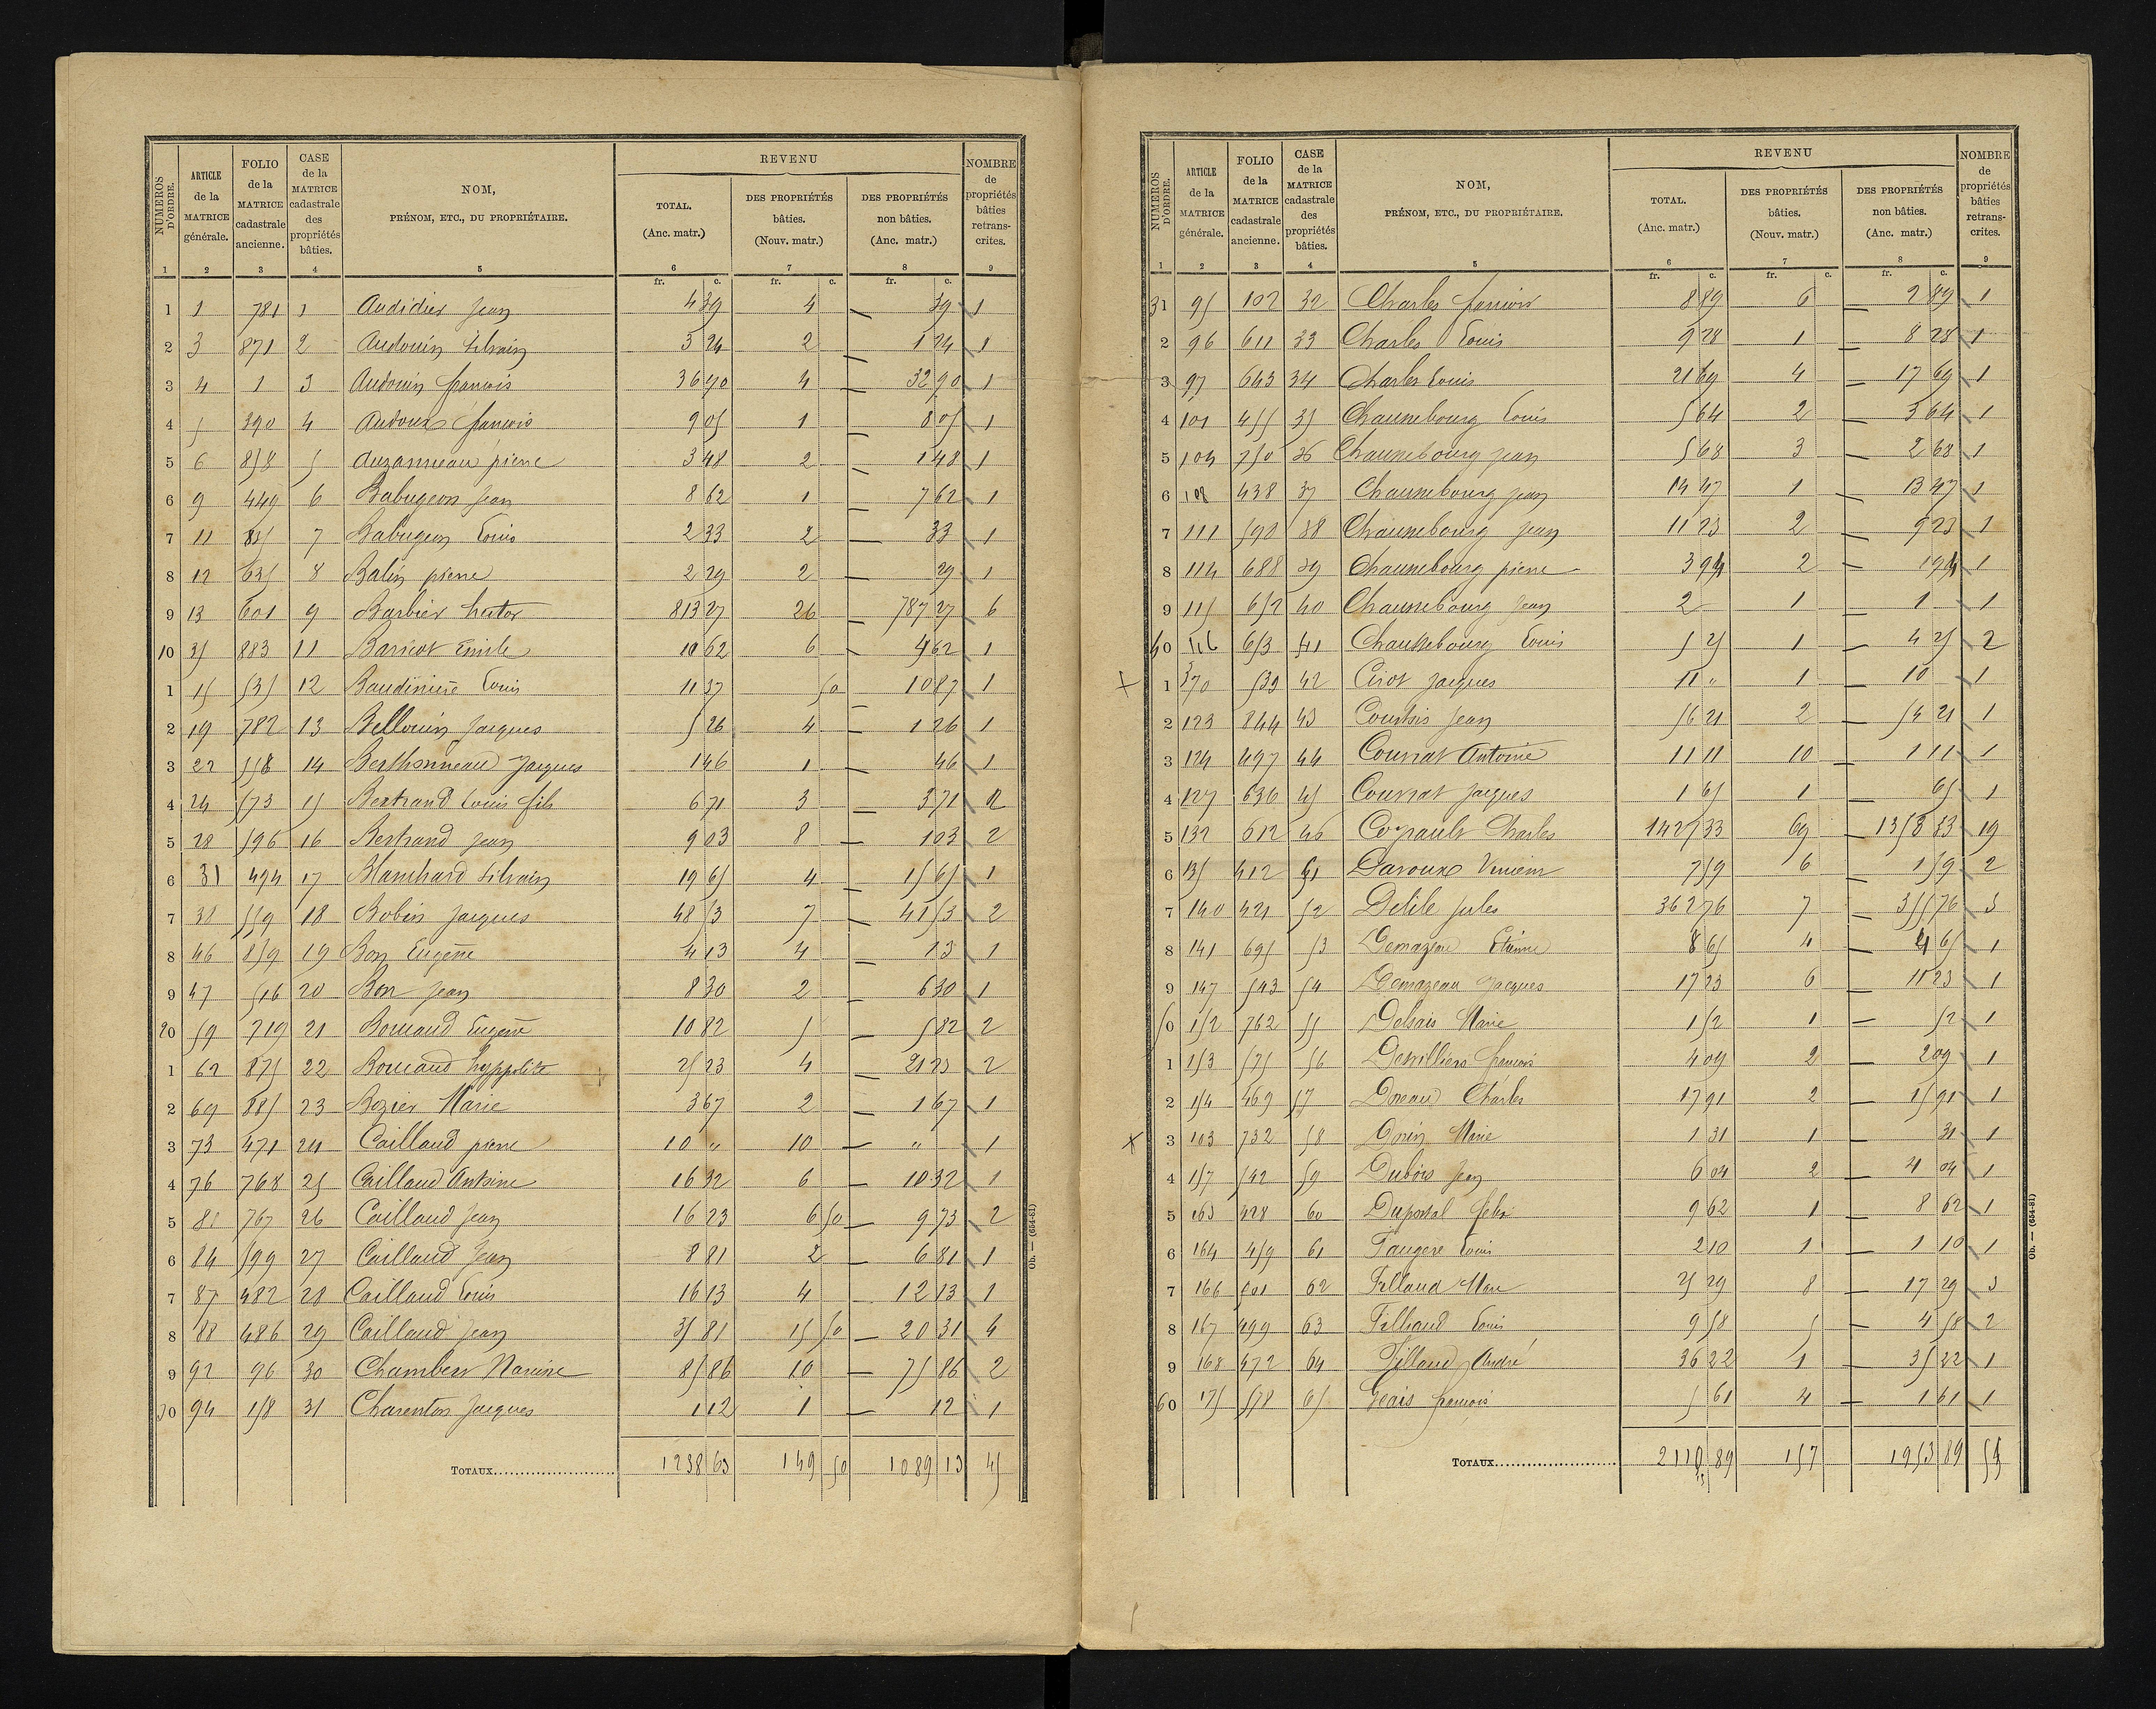 NUMÉROS D'ORDRE. ARTICLE de la MATRICE générale. FOLIO de la MATRICE cadastrale ancienne. CASE de la MATRICE cadastrale des propriétés bâties. NOM, PRÉNOM, ETC., DU PROPRIÉTAIRE. REVENU TOTAL. (Anc. matr.) DES PROPRIÉTÉS bâties. (Nouv. matr.) DES PROPRIÉTÉS non bâties. (Anc. matr.) NOMBRE de propriétés bâties retranscrites.
1 2 3 4 5 6 7 8 9
fr. c. fr. c. fr. c.
1 1 781 1 Audidier Jean 4 39 4 — 39 1
2 3 871 2 Audouin Silvain 3 24 2 — 1 24 1
3 4 1 3 Audouin françois 36 90 4 — 32 90 1
4 5 390 4 Audoux françois 9 05 1 — 8 05 1
5 6 858 5 Auzanneau pierre 3 48 2 — 1 48 1
6 9 449 6 Babugeon Jean 8 62 1 — 7 62 1
7 11 835 7 Babugeon Louis 2 33 2 — 33 1
8 12 635 8 Balin pierre 2 29 2 — 29 1
9 13 601 9 Barbier hector 813 27 26 — 787 27 6
10 25 883 11 Baricot Emile 10 62 6 — 4 62 1
1 15 535 12 Baudinière Louis 11 37 50 10 87 1
2 19 782 13 Bellouin Jacques 5 26 4 — 1 26 1
3 22 558 14 Berthonneau Jacques 1 46 1 — 46 1
4 24 573 15 Bertrand Louis fils 6 71 3 — 3 71 2
5 28 596 16 Bertrand Jean 9 03 8 — 1 03 2
6 31 494 17 Blanchard Silvain 19 65 4 — 15 65 1
7 38 559 18 Bobin Jacques 48 53 7 — 41 53 2
8 46 859 19 Bon Eugène 4 13 4 — 13 1
9 47 516 20 Bon Jean 8 30 2 — 6 30 1
20 59 719 21 Bouaud Eugène 10 82 5 — 5 82 2
1 62 875 22 Bouaud hyppolite 25 23 4 — 21 23 2
2 69 885 23 Bozier Marie 3 67 2 — 1 67 1
3 73 471 24 Caillaud pierre 10 " 10 — " 1
4 76 768 25 Caillaud Antoine 16 32 6 — 10 32 1
5 81 767 26 Caillaud Jean 16 23 6 50 — 9 73 2
6 84 599 27 Caillaud Jean 8 81 2 — 6 81 1
7 87 482 28 Caillaud Louis 16 13 4 — 12 13 1
8 88 486 29 Caillaud Jean 35 81 15 50 — 20 31 4
9 92 96 30 Chambers Narcisse 85 86 10 — 75 86 2
30 94 158 31 Charenton Jacques 1 12 1 — 12 1
TOTAUX 1238 63 149 50 1089 13 45
Ob. — (654-81)
NUMÉROS D'ORDRE. ARTICLE de la MATRICE générale. FOLIO de la MATRICE cadastrale ancienne. CASE de la MATRICE cadastrale des propriétés bâties. NOM, PRÉNOM, ETC., DU PROPRIÉTAIRE. REVENU TOTAL. (Anc. matr.) DES PROPRIÉTÉS bâties. (Nouv. matr.) DES PROPRIÉTÉS non bâties. (Anc. matr.) NOMBRE de propriétés bâties retranscrites.
1 2 3 4 5 6 7 8 9
fr. c. fr. c. fr. c.
31 95 102 32 Charles françois 8 89 6 — 2 89 1
2 96 611 33 Charles Louis 9 28 1 — 8 28 1
3 97 643 34 Charles Louis 21 69 4 — 17 69 1
4 101 455 35 Chaunebourg Louis 5 64 2 — 3 64 1
5 104 750 36 Chaunebourg Jean 5 68 3 — 2 68 1
6 108 438 37 Chaunebourg Jean 14 47 1 — 13 47 1
7 111 590 38 Chaunebourg Jean 11 23 2 — 9 23 1
8 114 688 39 Chaunebourg pierre 3 94 2 — 1 94 1
9 115 652 40 Chaunebourg Jean 2 1 — 1 1
40 116 653 41 Chaunebourg Louis 5 25 1 — 4 25 2
+ 1 370 539 42 Cirot Jacques 11 " 1 — 10 1
2 123 844 43 Courtois Jean 56 21 2 — 54 21 1
3 124 497 44 Courrat Antoine 11 11 10 — 1 11 1
4 127 636 45 Courrat Jacques 1 65 1 — 65 1
5 132 612 46 Coyrault Charles 1427 33 69 — 1358 33 19
6 135 412 51 Daroux Vincent 7 59 6 — 1 59 2
7 140 421 52 Delile Jules 362 76 7 — 355 76 3
8 141 695 53 Demazeau Etienne 8 65 4 — 4 65 1
9 147 543 54 Demazeau Jacques 17 23 6 — 11 23 1
50 152 762 55 Desais Marie 1 52 1 — 52 1
1 153 575 56 Desvilliers françois 4 09 2 — 2 09 1
2 154 469 57 Doreau Charles 17 91 2 — 15 91 1
× 3 103 732 58 Dorin Marie 1 31 1 — 31 1
4 157 542 59 Dubois Jean 6 04 2 — 4 04 1
5 163 428 60 Duportal felix 9 62 1 — 8 62 1
6 164 459 61 Faugere Louis 2 10 1 — 1 10 1
7 166 801 62 Fillaud Marc 25 29 8 — 17 29 3
8 167 499 63 Fillaud Louis 9 58 5 — 4 58 2
9 168 472 64 Fillaud André 36 22 1 — 35 22 1
60 175 578 65 Geais françois 5 61 4 — 1 61 1
TOTAUX 2110 89 157 1953 89 54
Ob. — (654-81)